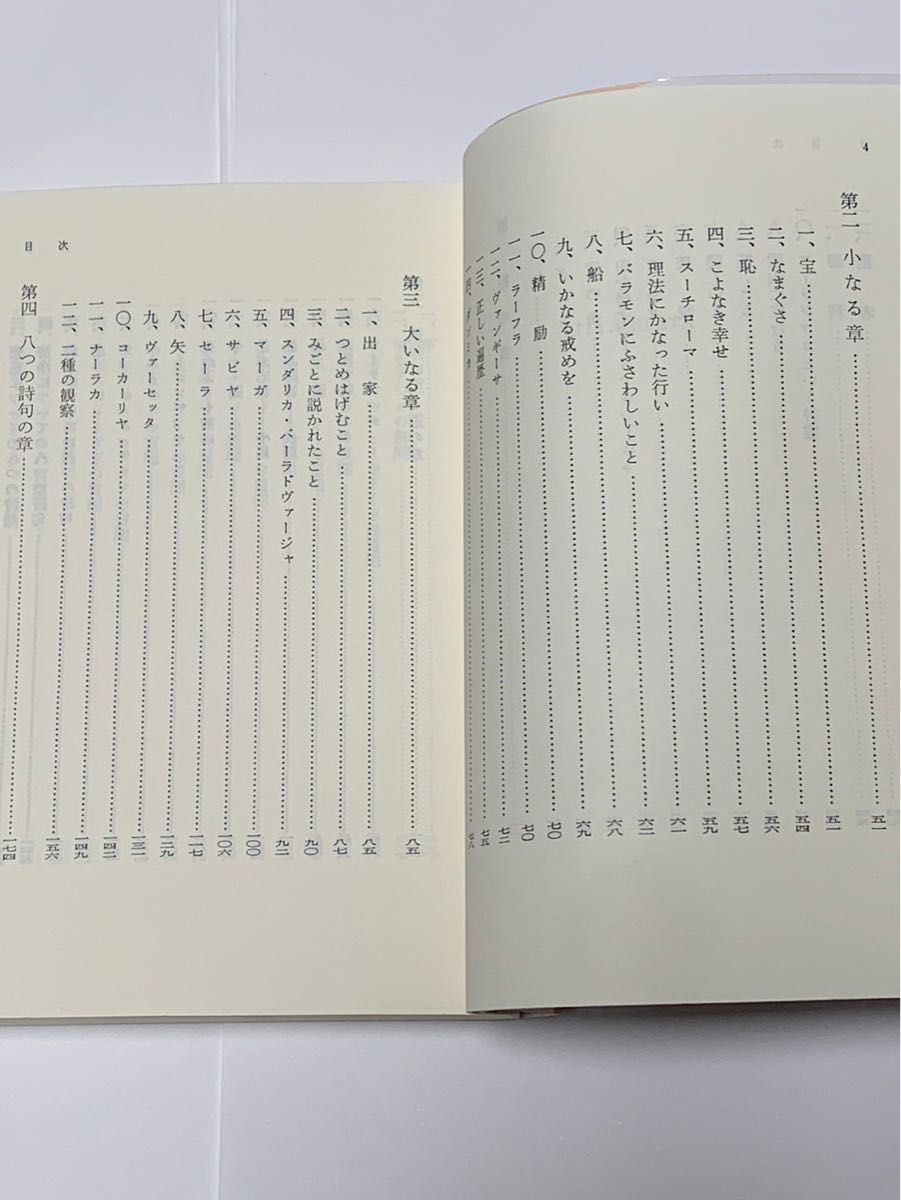 4
第二　小なる章……五一
一、宝……五一
二、なまぐさ……五四
三、恥……五六
四、こよなき幸せ……五七
五、スーチローマ……五九
六、理法にかなった行い……六一
七、バラモンにふさわしいこと……六二
八、船……六八
九、いかなる戒めを……六九
一〇、精　励……七〇
一一、ラーフラ……七〇
一二、ヴァンギーサ……七二
一三、正しい遍歴……七五
一四、ダンミカ……七八
目　次
第三　大いなる章……八五
一、出　家……八五
二、つとめはげむこと……八七
三、みごとに説かれたこと……九〇
四、スンダリカ・バーラドヴァージャ……九二
五、マーガ……一〇〇
六、サビヤ……一〇六
七、セーラ……一一七
八、矢……一二九
九、ヴァーセッタ……一三一
一〇、コーカーリヤ……一四二
一一、ナーラカ……一四九
一二、二種の観察……一五六
第四　八つの詩句の章……一七四